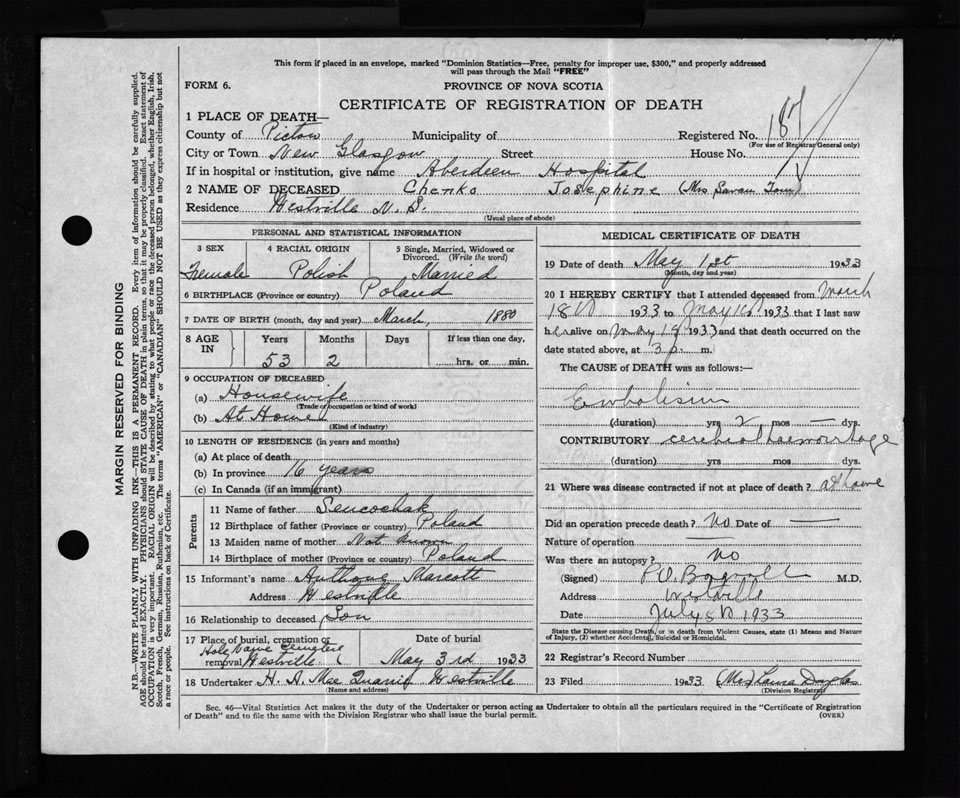 This form if placed in an envelope, marked "Dominion Statistics—Free, penalty for improper use, $300," and properly addressed
will pass through the Mail "FREE"
FORM 6.
PROVINCE OF NOVA SCOTIA
CERTIFICATE OF REGISTRATION OF DEATH
1 PLACE OF DEATH—
County of Pictou Municipality of Registered No. 187
(For use of Registrar General only)
City or Town New Glasgow Street House No.
If in hospital or institution, give name Aberdeen Hospital
2 NAME OF DECEASED Chenko Josephine (Mrs Savan Tom)
Residence Westville N.S.
(Usual place of abode)
PERSONAL AND STATISTICAL INFORMATION
3 SEX 4 RACIAL ORIGIN 5 Single, Married, Widowed or
Divorced. (Write the word)
Female Polish Married
6 BIRTHPLACE (Province or country) Poland
7 DATE OF BIRTH (month, day and year) March, 1880
8 AGE IN Years Months Days If less than one day,
53 2 hrs. or min.
9 OCCUPATION OF DECEASED
(a) Housewife
(Trade occupation or kind of work)
(b) At Home
(Kind of industry)
10 LENGTH OF RESIDENCE (in years and months)
(a) At place of death
(b) In province 16 years
(c) In Canada (if an immigrant)
Parents
11 Name of father Sencochak
12 Birthplace of father (Province or country) Poland
13 Maiden name of mother Not known
14 Birthplace of mother (Province or country) Poland
15 Informant's name Anthony Marcott
Address Westville
16 Relationship to deceased Son
17 Place of burial, cremation or Date of burial
Holy Name Cemetery
removal Westville May 3rd 1933
18 Undertaker H. A. Mac Quarrie Westville
(Name and address)
MEDICAL CERTIFICATE OF DEATH
19 Date of death May 1st 1933
(Month, day and year)
20 I HEREBY CERTIFY that I attended deceased from March
18th 1933 to May 1st 1933 that I last saw
her alive on May 1st 1933 and that death occurred on
date stated above, at 3 p. m.
The CAUSE of DEATH was as follows:—
Embolism
(duration) yrs 2 mos — dys.
CONTRIBUTORY cerebral haemorrhage
(duration) yrs mos dys.
21 Where was disease contracted if not at place of death? at home
Did an operation precede death? No Date of —
Nature of operation —
Was there an autopsy? no
(Signed) M.D.
Address Westville
Date July 5th 1933
State the Disease causing Death, or in death from Violent Causes, state (1) Means and Nature
of Injury, (2) whether Accidental, Suicidal or Homicidal.
22 Registrar's Record Number
23 Filed 1933 (Mrs) Laura Douglas
(Division Registrar)
Sec. 46—Vital Statistics Act makes it the duty of the Undertaker or person acting as Undertaker to obtain all the particulars required in the "Certificate of Registration
of Death" and to file the same with the Division Registrar who shall issue the burial permit.
(OVER)
MARGIN RESERVED FOR BINDING
N.B.—WRITE PLAINLY WITH UNFADING INK—THIS IS A PERMANENT RECORD. Every item of information should be carefully supplied.
AGE should be stated EXACTLY. PHYSICIANS should STATE CAUSE OF DEATH in plain terms, so that it may be properly classified. Exact statement of
OCCUPATION is very important. RACIAL ORIGIN will be described by stating to what people or race the deceased person belonged, whether English, Irish,
Scotch, French, German, Russian, Ruthenian, etc. The terms "AMERICAN" or "CANADIAN" SHOULD NOT BE USED as they express citizenship but not
a race or people. See instructions on back of Certificate.